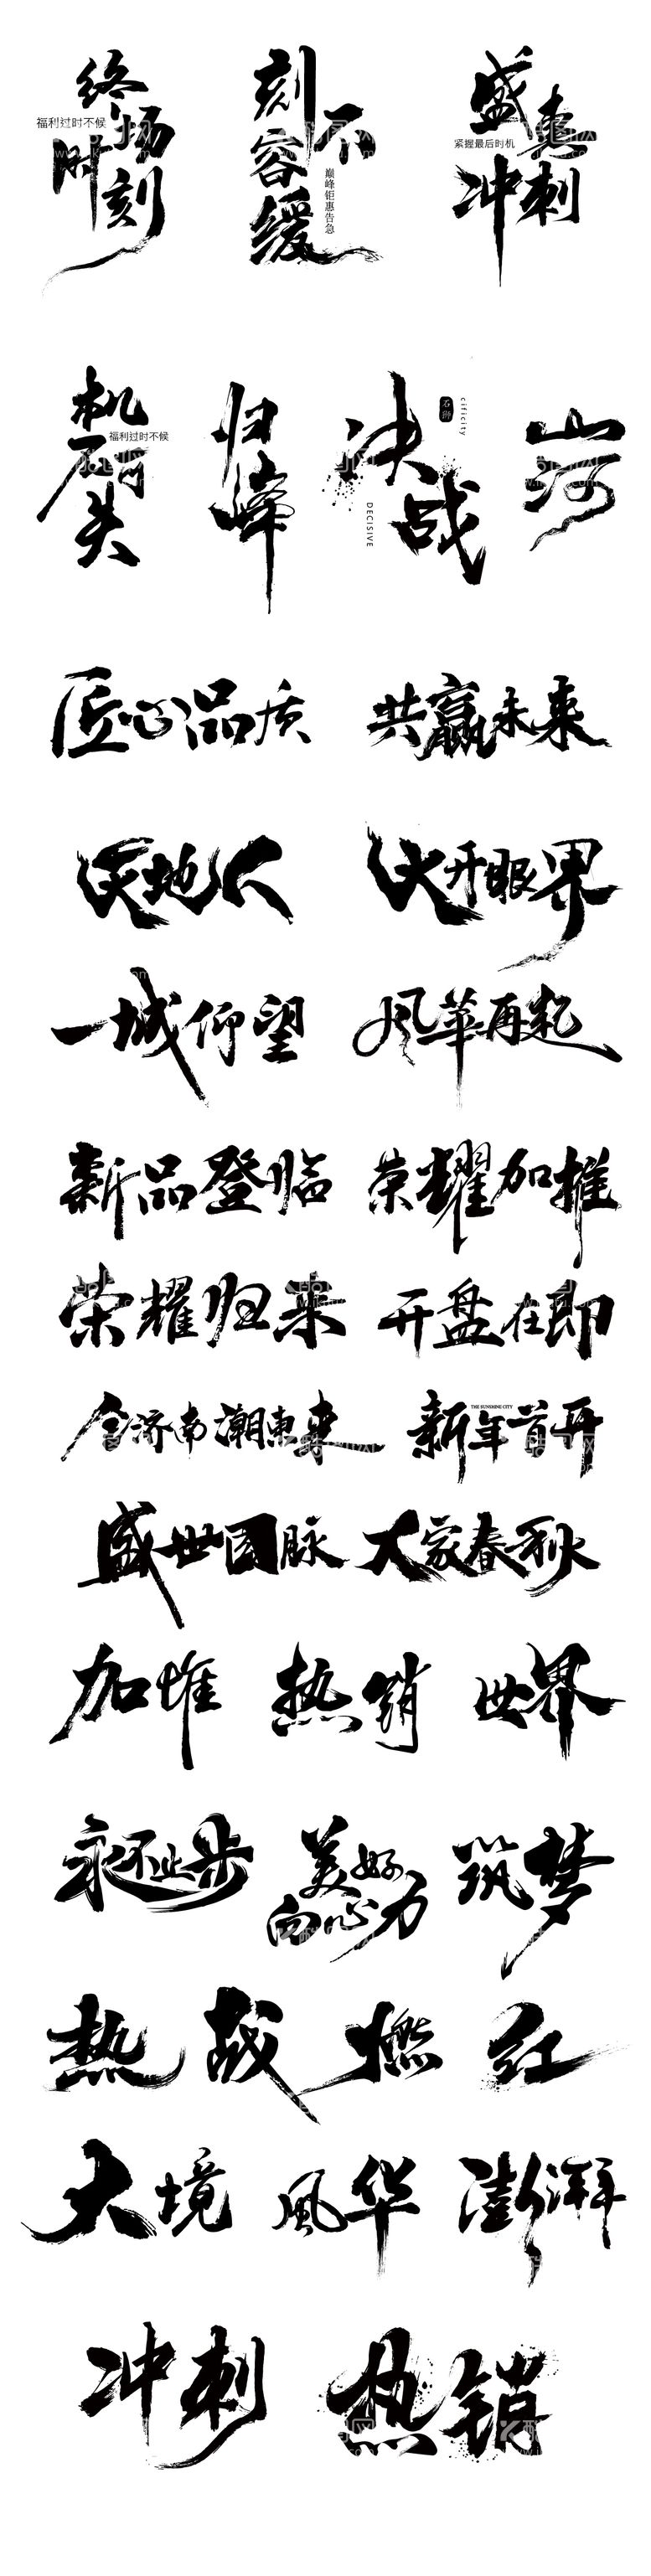 终场时刻
福利过时不候
刻不容缓
巅峰钜惠告急
盛惠冲刺
紧握最后时机
机不可失
福利过时不候
归峰
决战
石狮
cificity
DECISIVE
山河
匠心品质
共赢未来
天地人
大开眼界
一城仰望
风华再起
新品登临
荣耀加推
荣耀归来
开盘在即
全济南潮东来
新年首开
THE SUNSHINE CITY
盛世国脉
大家春秋
加推
热销
世界
永不止步
美好向心力
筑梦
热
战
燃
红
大境
風华
澎湃
冲刺
热销